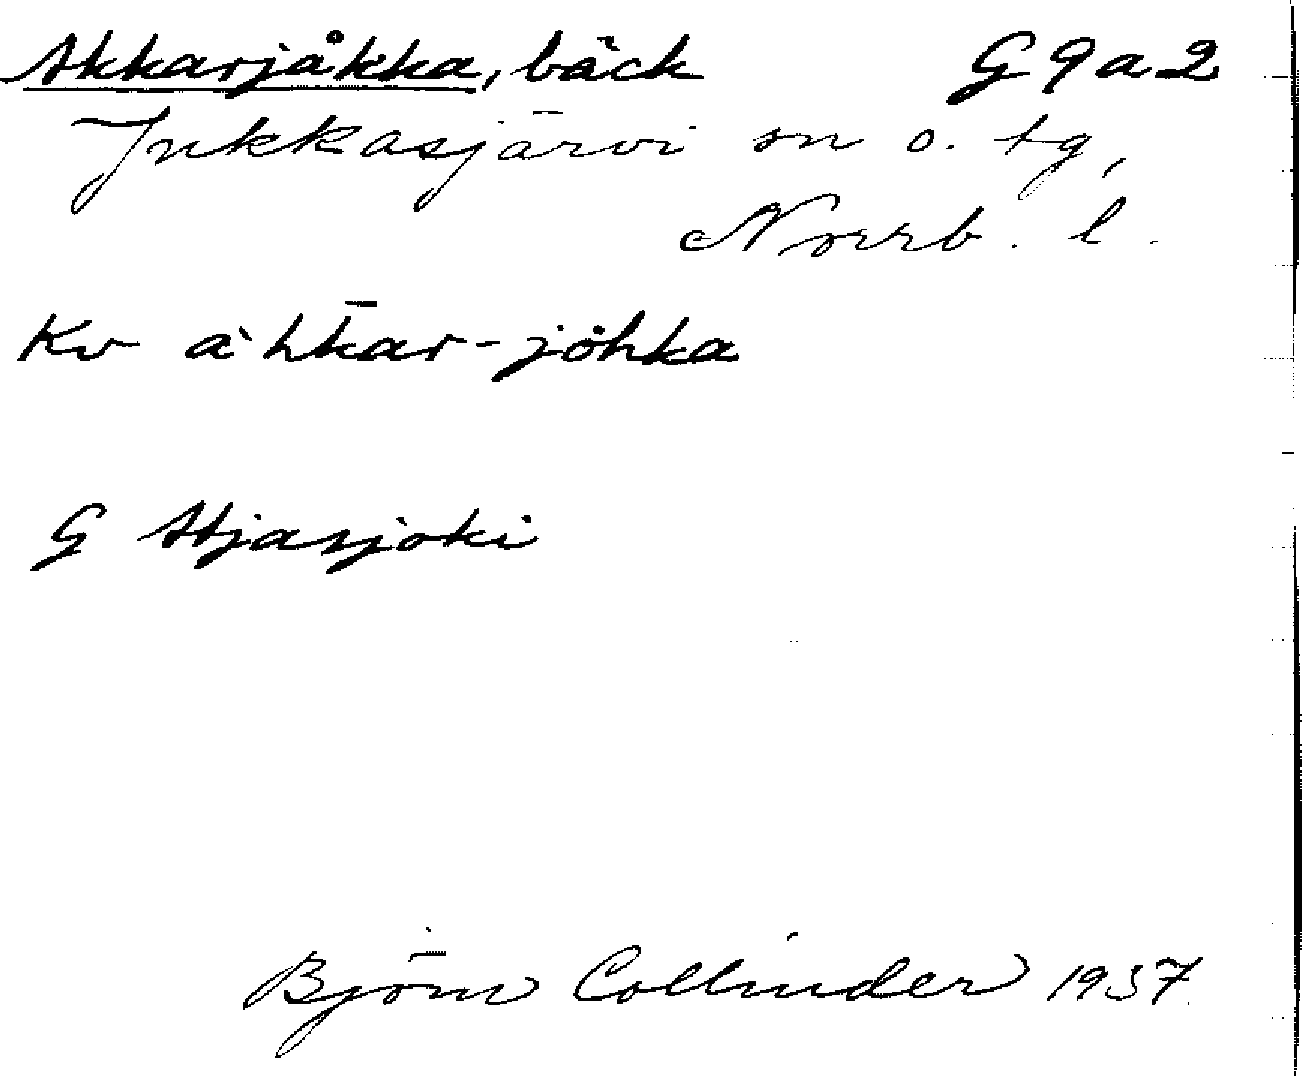 Akkarjåkka, bäck G 9 a 2
Jukkasjärvi sn o. tg,
Norrb. l.
Kv àhkār-jöhka
G Atjasjoki
Björn Collinder 1957